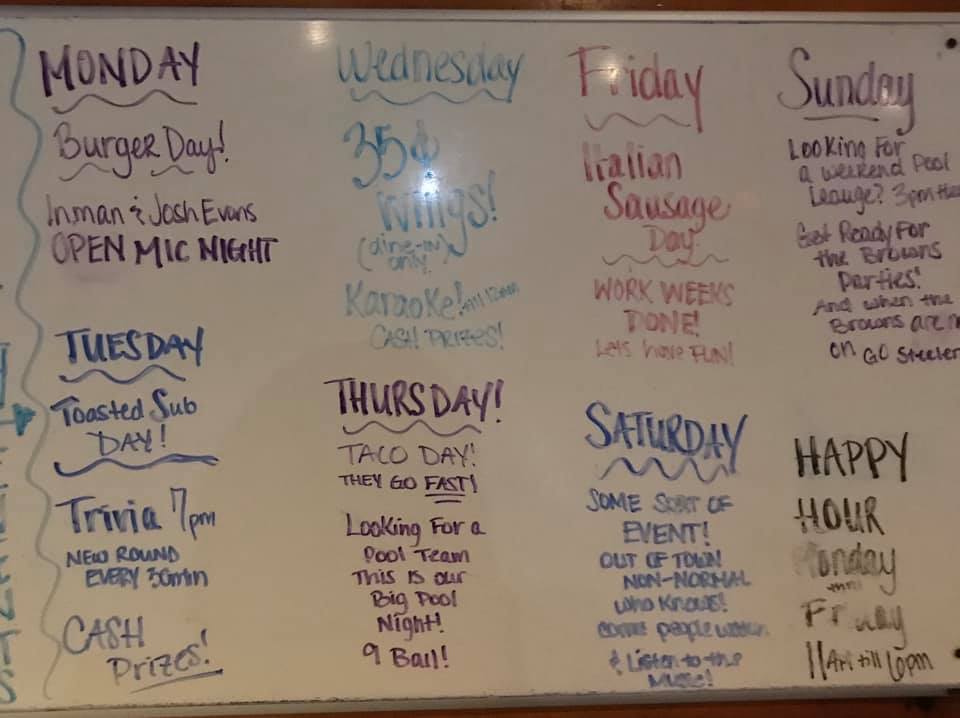 MONDAY
Burger Day!
Inman & Josh Evans
OPEN MIC NIGHT
TUESDAY
Toasted Sub
DAY!
Trivia 7pm
NEW ROUND
EVERY 30min
CASH
Prizes!
Wednesday
35¢
Wings!
(dine-in
only)
Karaoke! till 12am
CASH PRIZES!
THURSDAY!
TACO DAY!
THEY GO FAST!
Looking For a
Pool Team
This is our
Big Pool
Night!
9 Ball!
Friday
Italian
Sausage
Day
WORK WEEKS
DONE!
Lets have FUN!
SATURDAY
SOME SORT OF
EVENT!
OUT OF TOWN
NON-NORMAL
who knows!
come people watch
& Listen to the
Music!
Sunday
Looking For
a weekend Pool
Leauge? 3pm
Get Ready For
the Browns
Parties!
And when the
Browns are
on GO Steeler
HAPPY
HOUR
Monday
thru
Friday
11Am till 6pm